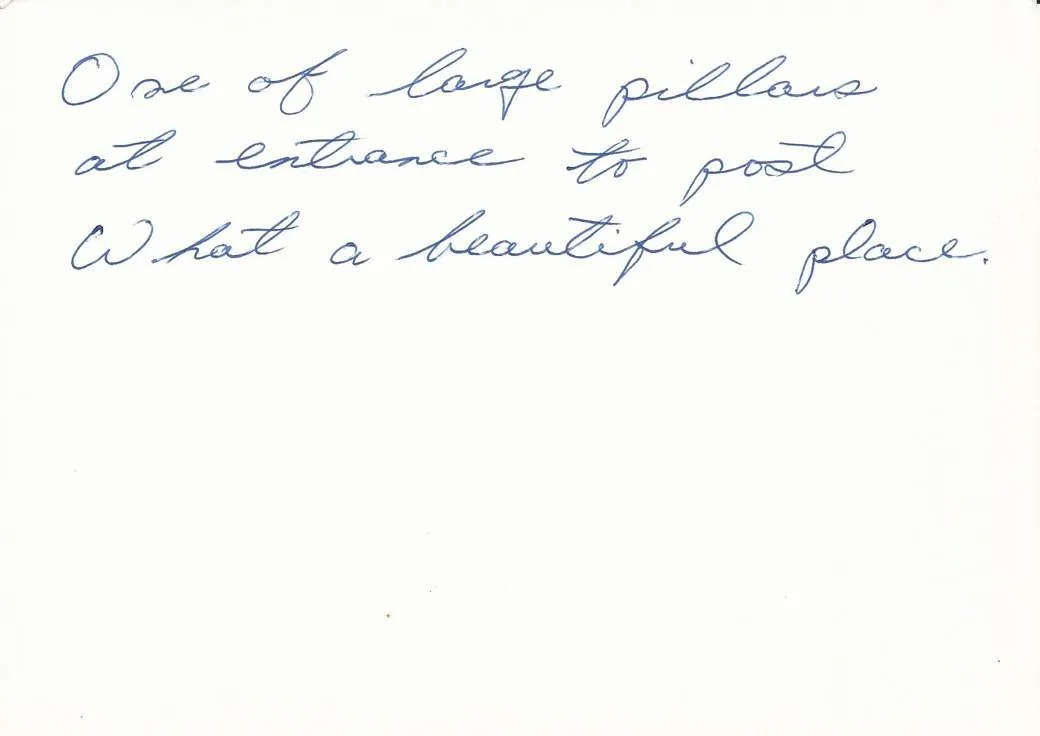 One of large pillars
at entrance to post
What a beautiful place.